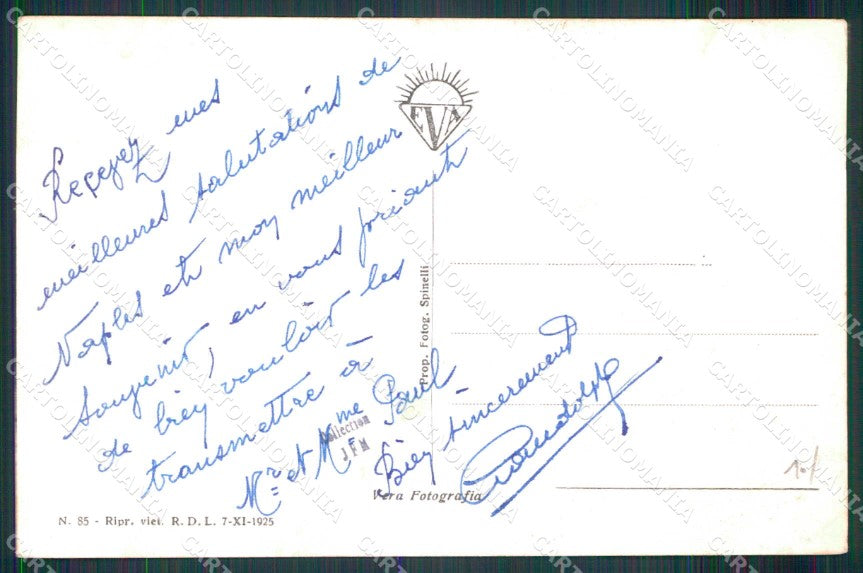 Recevez mes
meilleures salutations de
Naples et mon meilleur
souvenir, en vous priant
de bien vouloir les
transmettre à
Mr. et Mme Paul
Bien sincerement
EVA
Prop. Fotog. Spinelli
Collection
J F M
Vera Fotografia
N. 85 - Ripr. viet. R. D. L. 7-XI-1925
CARTOLINOMANIA